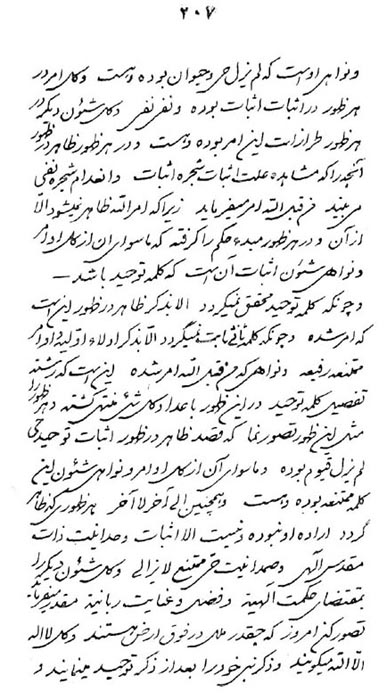 ۲۰۷
و نواهی اوست که لم یزل حی و حیوان بوده و هست و کل امر در
هر ظهور در اثبات اثبات بوده و نفی نفی و کل شئون دیگر در
هر ظهور طرازات این امر بوده و هست و در هر ظهور ظاهر در ظهور
آنچه را که مشاهده علت اثبات شجره اثبات و انعدام شجره نفی
می بیند من قبل الله امر میفرماید زیرا که امر الله ظاهر نمیشود الا
از آن و در هر ظهور مبدء حکم را گرفته که ماسوای آن از کل اوامر
و نواهی شئون اثبات آن است که کلمه توحید باشد
و چونکه کلمه توحید محقق نمیگردد الا بذکر ظاهر در ظهور این است
که امر شده و چونکه کلمه ثانی ثابت نمیگردد الا بذکر ادلاء اولیه و اوامر
ممتنعه رفیعه و نواهی که من قبل الله امر شده این است که رشته
تفصیل کلمه توحید در این ظهور باعداد کل شیء منتهی گشته و هر ظهور را
مثل این ظهور تصور نما که قصد ظاهر در ظهور اثبات توحید حی
لم یزل قیوم بوده و ماسوای آن از کل اوامر و نواهی شئون این
کلمه ممتنعه بوده و هست و همچنین الی آخر لا آخر هر ظهوری که ظاهر
گردد اراده او نبوده و نیست الا اثبات وحدانیت ذات
مقدس الهی و صمدانیت حی ممتنع لایزالی و کل شئون دیگر را
بمقتضای حکمت الهیه و فضل و عنایت ربانیه مقدر میفرماید
تصور کن امروز که چقدر ملل در فوق ارض هستند و کل لااله
الا الله میگویند و ذکر نبی خود را بعد از ذکر توحید مینمایند و